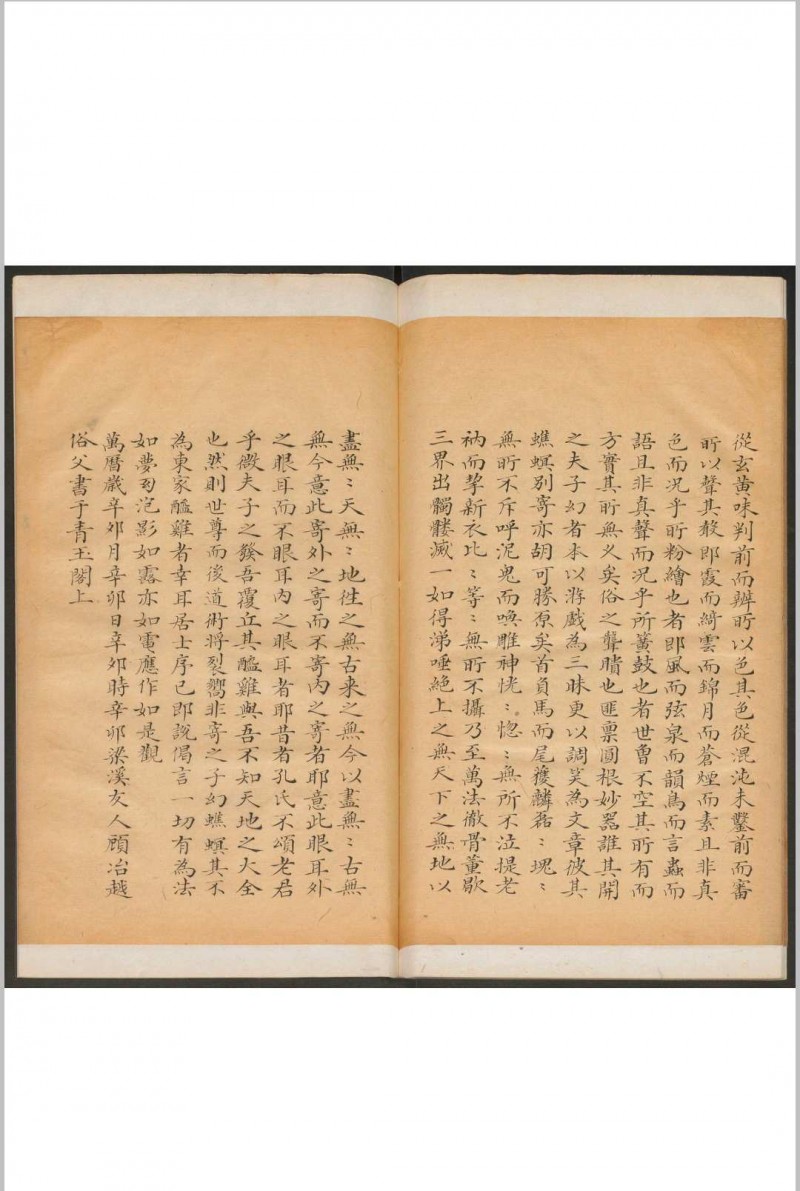 從玄黃味判前而辨所以色其色從混沌未鑿前而審
所以聲其聲即霞而綺雲而錦月而蒼煙而素且非真
色而况乎所粉繪也者即風而弦泉而韻鳥而言蟲而
語且非真聲而况乎所簧鼓也者世曹不空其所有而
方實其所無乂矣俗之聾瞶也匪稟圓根妙器誰其開
之夫子幻者本以游戲為三昧更以調笑為文章彼其
蟭螟别寄亦胡可勝原矣首負馬而尾獲麟磊〻塊〻
無所不斥呼泥鬼而喚雕神恍〻惚〻無所不泣提老
衲而挈新衣比〻等〻無所不攝乃至萬法徹骨董歇
三界出髑髏滅一如得涕唾絕上之無天下之無地以
盡無〻天無〻地徃之無古来之無今以盡無〻古無
無今意此寄外之寄而不寄内之寄者耶意此眼耳外
之眼耳而不眼耳内之眼耳者耶昔者孔氏不頌老君
乎微夫子之發吾覆丘其醯雞與吾不知天地之大全
也然則世尊而後道術將裂嚮非寄之子幻蟭螟其不
為東家醯雞者幸耳居士序已即說偈言一切有為法
如夢幻泡影如露亦如電應作如是觀
萬曆歲辛卯月辛卯日辛卯時辛卯梁溪友人顧冶越
俗父書于青玉閣上